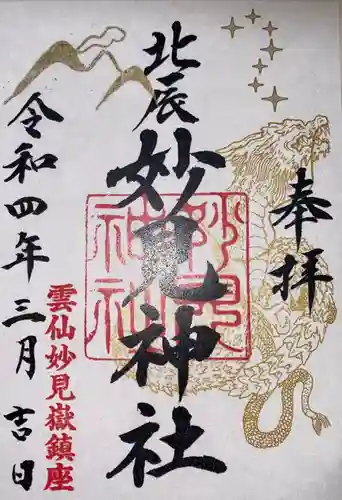 奉拝
北辰
妙見神社
妙見
神社
令和四年三月吉日
雲仙妙見嶽鎮座